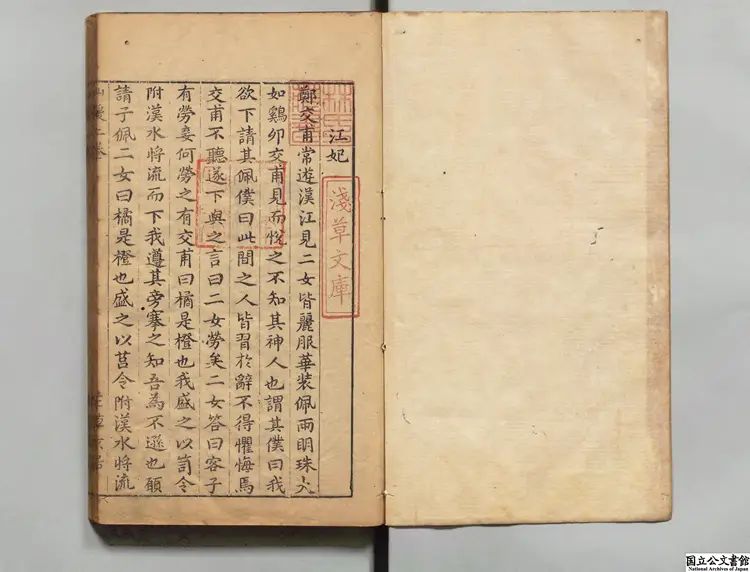 淺草文庫
江妃
鄭交甫常遊漢江見二女皆麗服華裝佩兩明珠大
如鷄卵交甫見而悅之不知其神人也謂其僕曰我
欲下請其佩僕曰此間之人皆習於辭不得懼悔焉
交甫不聽遂下與之言曰二女勞矣二女答曰客子
有勞妾何勞之有交甫曰橘是橙也我盛之以笥令
附漢水將流而下我遵其旁搴之知吾為不遜也願
請子佩二女曰橘是橙也盛之以莒令附漢水將流
国立公文書館
National Archives of Japan